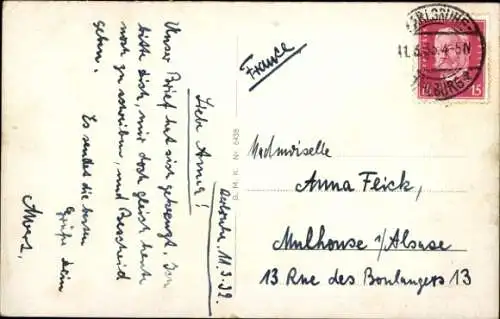 Karlsruhe, 11.3.32.
Liebe Anna!
Unser Brief hat sich gekreuzt. Ich
bitte dich, mir doch gleich heute
noch zu schreiben, und Bescheid
geben.
Es sendet die besten
Grüße dein
France
KARLSRUHE
15
B. M. K. Nr. 6438
Mademoiselle
Anna Feick,
Mulhouse i/Alsase
13 Rue des Boulangers 13